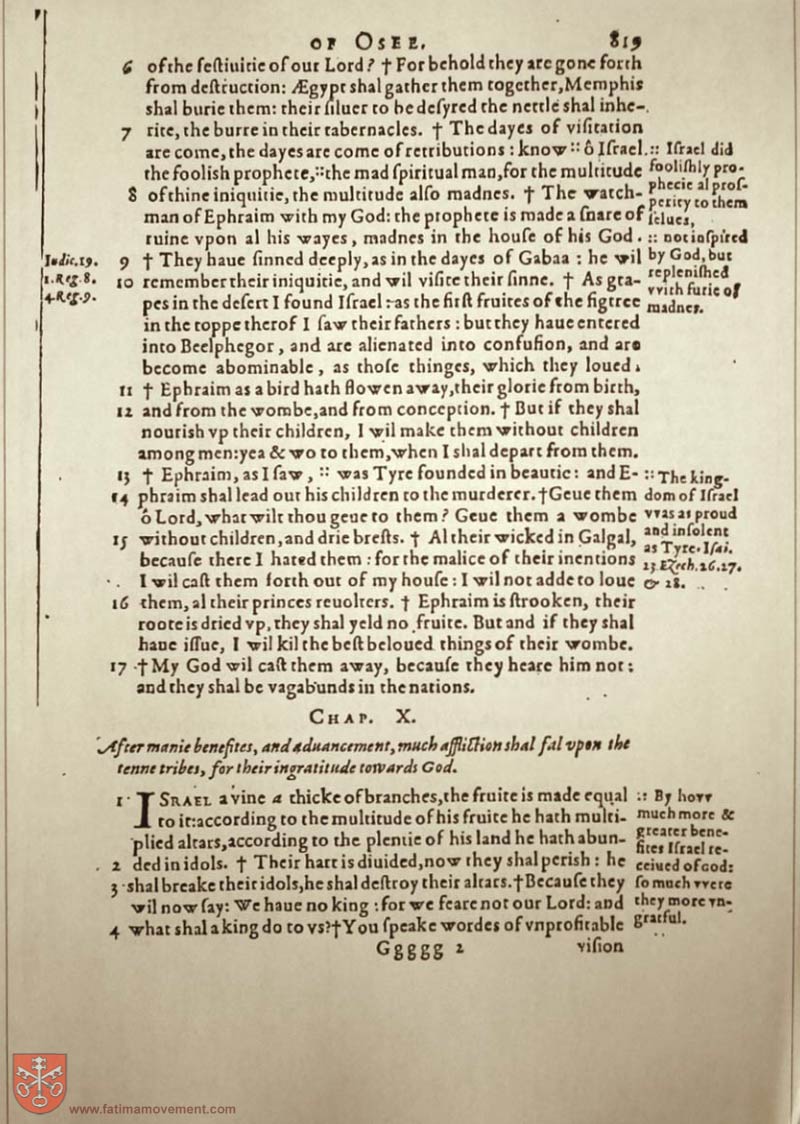 OF OSEE. 819
6 of the feſtiuitie of our Lord? † For behold they are gone forth
from deſtruction: Ægypt shal gather them together, Memphis
shal burie them: their ſiluer to be deſyred the nettle shal inhe-
7 rite, the burre in their tabernacles. † The dayes of viſitation
are come, the dayes are come of retributions: know :: ô Iſrael
the foolish prophete, :: the mad ſpiritual man, for the multitude
8 of thine iniquitie, the multitude alſo madnes. † The watch-
man of Ephraim with my God: the prophete is made a ſnare of
ruine vpon al his wayes, madnes in the houſe of his God.
9 † They haue ſinned deeply, as in the dayes of Gabaa: he wil
10 remember their iniquitie, and wil viſite their ſinne. † As gra-
pes in the deſert I found Iſrael: as the firſt fruites of the figtree
in the toppe therof I ſaw their fathers: but they haue entered
into Beelphegor, and are alienated into confuſion, and are
become abominable, as thoſe thinges, which they loued.
11 † Ephraim as a bird hath flowen away, their glorie from birth,
12 and from the wombe, and from conception. † But if they shal
nourish vp their children, I wil make them without children
among men: yea & wo to them, when I shal depart from them.
13 † Ephraim, as I ſaw, :: was Tyre founded in beautie: and E-
14 phraim shal lead out his children to the murderer. † Geue them
ô Lord, what wilt thou geue to them? Geue them a wombe
15 without children, and drie breſts. † Al their wicked in Galgal,
becauſe there I hated them: for the malice of their inentions
I wil caſt them forth out of my houſe: I wil not adde to loue
16 them, al their princes reuolters. † Ephraim is ſtrooken, their
roote is dried vp, they shal yeld no fruite. But and if they shal
haue iſſue, I wil kil the beſt beloued things of their wombe.
17 † My God wil caſt them away, becauſe they heare him not:
and they shal be vagabunds in the nations.
:: Iſrael did
fooliſhly pro-
phecie al proſ-
perity to them
ſelues,
:: not inſpired
by God, but
repleniſhed
vvith furie of
madnes.
Iudic. 19.
1. Reg. 8.
4. Reg. 9.
:: The king-
dom of Iſrael
vvas as proud
and inſolent
as Tyre. Iſai.
23. Ezech. 26. 27.
& 28.
CHAP. X.
After manie benefites, and aduancement, much affliction shal fal vpon the
tenne tribes, for their ingratitude towards God.
1 ISRAEL a vine a thicke of branches, the fruite is made equal
to it: according to the multitude of his fruite he hath multi-
plied altars, according to the plentie of his land he hath abun-
2 ded in idols. † Their hart is diuided, now they shal perish: he
3 shal breake their idols, he shal deſtroy their altars. † Becauſe they
wil now ſay: We haue no king: for we feare not our Lord: and
4 what shal a king do to vs? † You ſpeake wordes of vnprofitable
:: By hovv
much more &
greater bene-
fites Iſrael re-
ceiued of God:
ſo much vvere
they more vn-
grateful.
Ggggg 2 viſion
www.fatimamovement.com